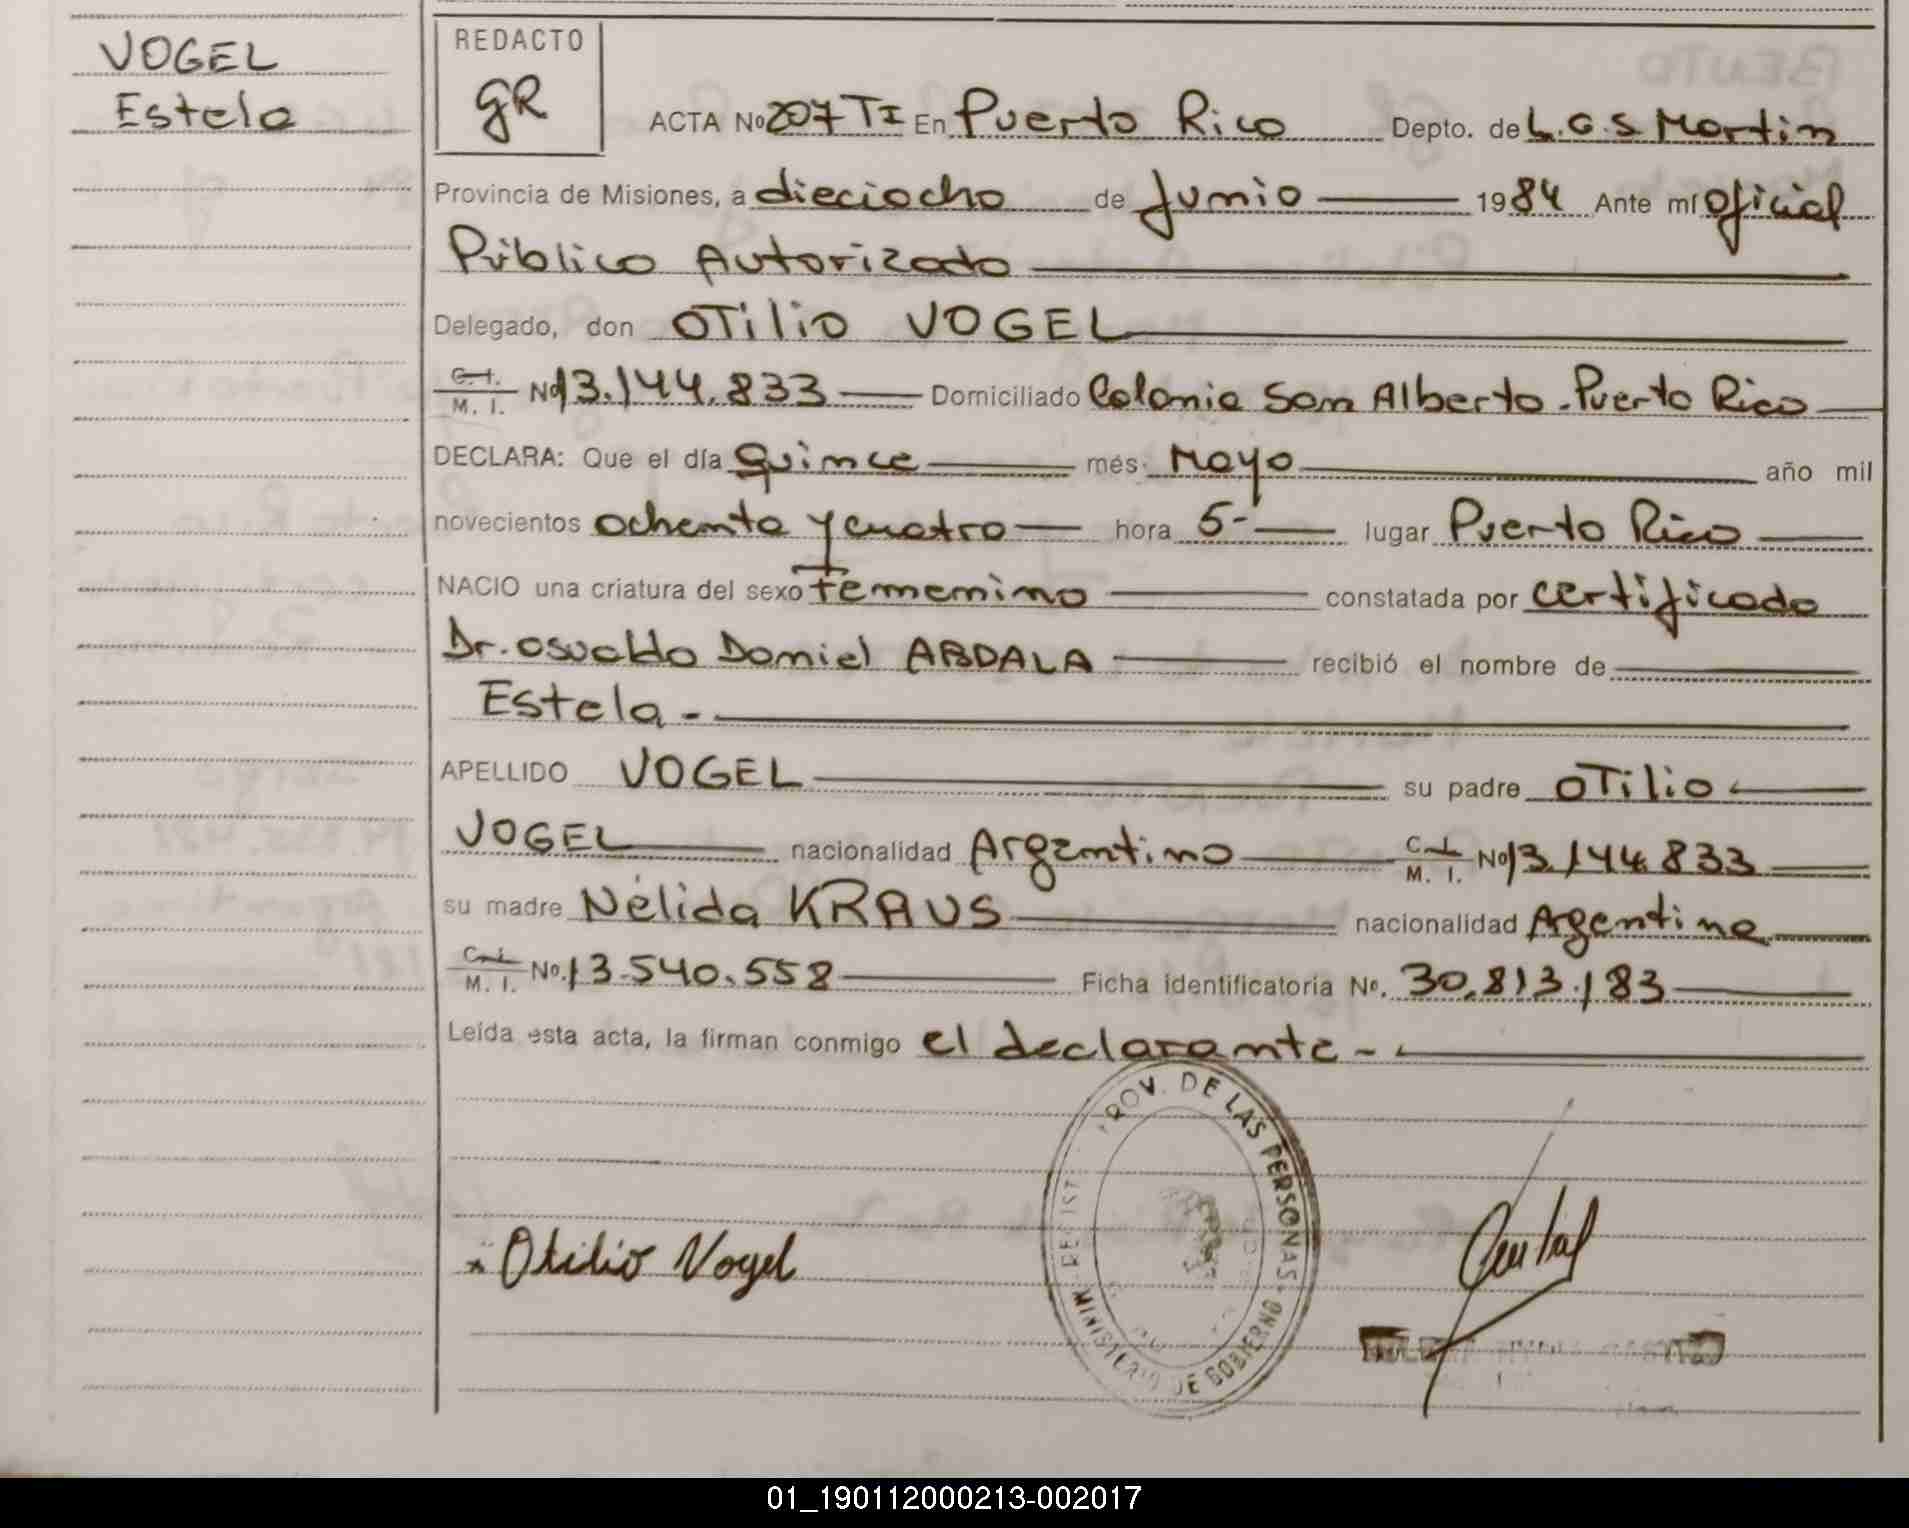 VOGEL
Estela
REDACTO
GR
ACTA Nº 207 TI En Puerto Rico Depto. de L.G.S Martín
Provincia de Misiones, a dieciocho de Junio 1984 Ante mí oficial
Público Autorizado
Delegado, don OTILIO VOGEL
C.I. M. I. Nº 13.144.833 Domiciliado Colonia San Alberto - Puerto Rico
DECLARA: Que el día quince mes Mayo año mil
novecientos ochenta y cuatro hora 5- lugar Puerto Rico
NACIO una criatura del sexo femenino constatada por certificado
Dr. Osvaldo Daniel ABDALA recibió el nombre de
Estela.-
APELLIDO VOGEL su padre OTILIO
VOGEL nacionalidad Argentino C.I. M. I. Nº 13.144.833
su madre Nélida KRAUS nacionalidad Argentina
C.I. M. I. Nº. 13.540.558 Ficha identificatoria Nº. 30.813.183
Leída esta acta, la firman conmigo el declarante -.
PROV. DE LAS PERSONAS
MINISTERIO DE GOBIERNO
Otilio Vogel
01_190112000213-002017